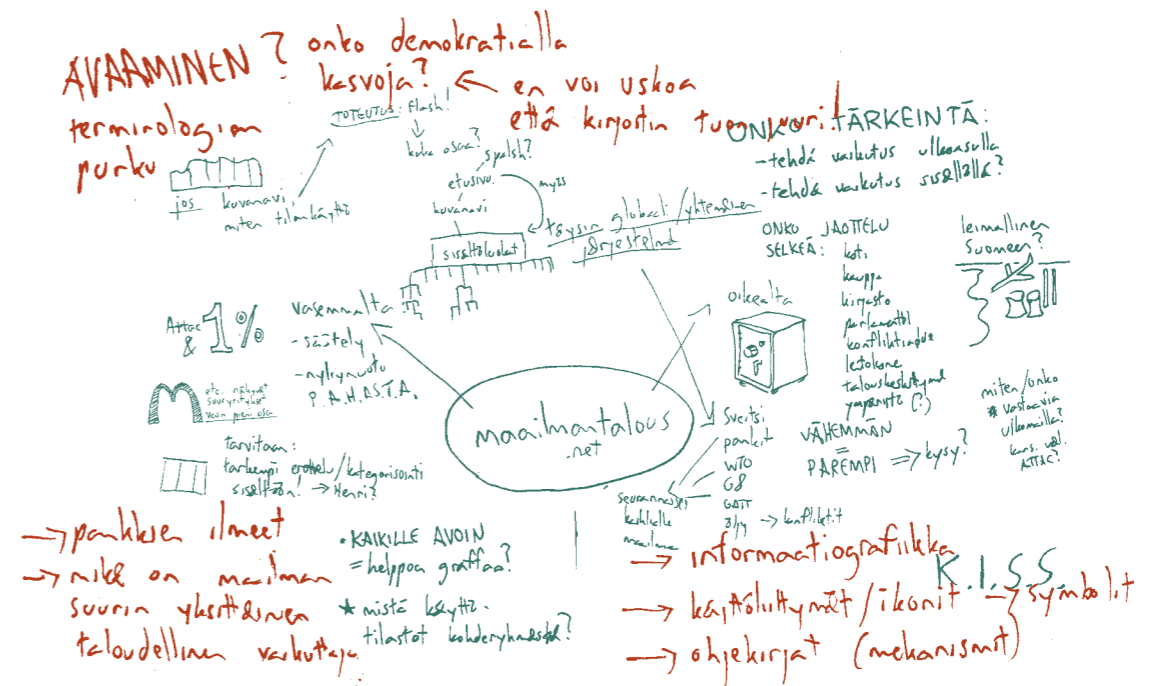 AVAAMINEN?
terminologian
purku
onko demokratialla
kasvoja? ← en voi uskoa
että kirjoitin tuon juuri!
TOTEUTUS: Flash!
kuka osaa?
splash?
etusivu
kuvanavi
myös
sisältöluokat
jos kuvanavi,
miten tilankäyttö
täysin globaali/yhtenäinen
järjestelmä
ONKO TÄRKEINTÄ:
-tehdä vaikutus ulkoasulla
-tehdä vaikutus sisällöllä?
ONKO JAOTTELU
SELKEÄ:
koti
kauppa
kirjasto
parlamentti
lentokone
talouskeskittymä
ympäristö (?)
leimallinen
Suomeen?
oikealta
Attac
& 1%
vasemmalta:
- säätely
- nykymuoto
P.A.H.A.S.T.A.
etc. näkyvät
suuryritykset
vain pieni osa
maailmantalous
.net
Sveitsi
pankit
WTO
G8
GATT
öljy → konfliktit
seuraamukset
kaikkialle
maailmaa
VÄHEMMÄN
=
PAREMPI ⇒ kysy?
miten/onko
* vastaavia
ulkomailla?
kans. väl.
ATTAC?
tarvitaan:
tarkempi erottelu/kategorisointi
sisältöön! → Henri?
→ pankkien ilmeet
→ mikä on maailman
suurin yksittäinen
taloudellinen vaikuttaja
• KAIKILLE AVOIN
= helppoa graffaa?
★ mistä käyttö-
tilastot kohderyhmästä?
→ informaatiografiikka
K.I.S.S
→ käyttöliittymät/ikonit → symbolit
→ ohjekirjat (mekanismit)